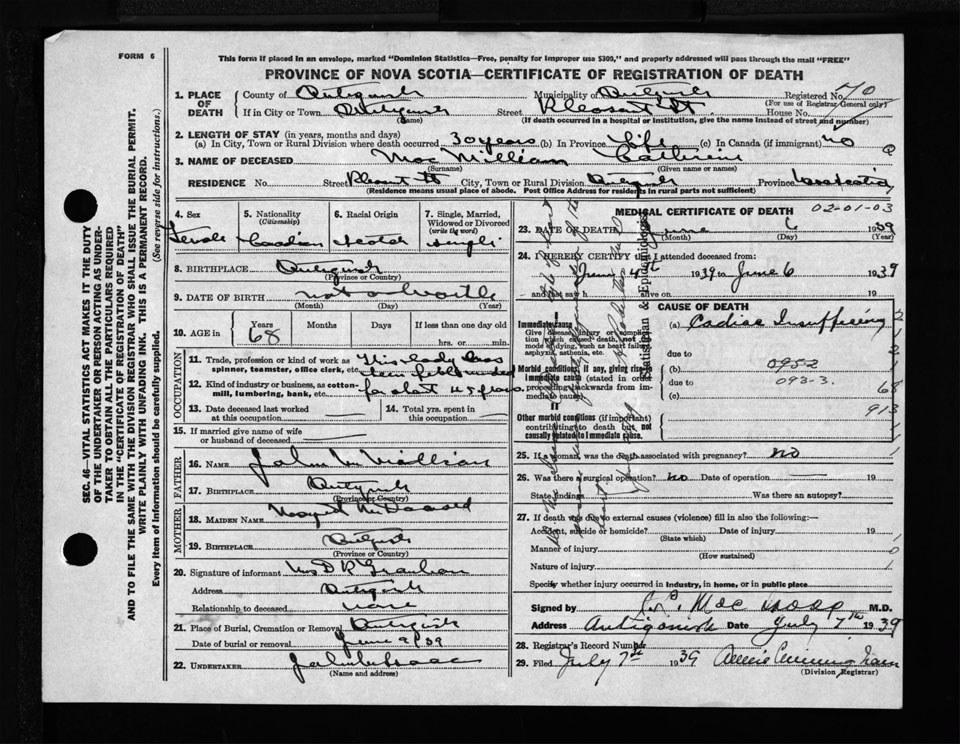 FORM 6
This form if placed in an envelope, marked "Dominion Statistics—Free, penalty for improper use $300," and properly addressed will pass through the mail "FREE"
PROVINCE OF NOVA SCOTIA—CERTIFICATE OF REGISTRATION OF DEATH
1. PLACE OF DEATH
County of Antigonish Municipality of Antigonish Registered No. 70
(For use of Registrar General only)
If in City or Town Antigonish Street Pleasant St. House No.
(name) (If death occurred in a hospital or institution, give the name instead of street and number)
2. LENGTH OF STAY (in years, months and days)
(a) In City, Town or Rural Division where death occurred 30 years (b) In Province Life (c) In Canada (if immigrant) no
3. NAME OF DECEASED MacMillian Catherine
(Surname) (Given name or names)
RESIDENCE No. Street Pleasant St City, Town or Rural Division Antigonish Province Nova Scotia
(Residence means usual place of abode. Post Office Address for residents in rural parts not sufficient)
SEC. 46—VITAL STATISTICS ACT MAKES IT THE DUTY
OF THE UNDERTAKER OR PERSON ACTING AS UNDER-
TAKER TO OBTAIN ALL THE PARTICULARS REQUIRED
IN THE "CERTIFICATE OF REGISTRATION OF DEATH"
AND TO FILE THE SAME WITH THE DIVISION REGISTRAR WHO SHALL ISSUE THE BURIAL PERMIT.
WRITE PLAINLY WITH UNFADING INK. THIS IS A PERMANENT RECORD.
Every item of information should be carefully supplied. (See reverse side for instructions.)
4. Sex 5. Nationality (Citizenship) 6. Racial Origin 7. Single, Married, Widowed or Divorced (write the word)
Female Canadian Scotch single
8. BIRTHPLACE Antigonish
(Province or Country)
9. DATE OF BIRTH
(Month) (Day) (Year)
10. AGE in Years Months Days If less than one day old
68 hrs. or min.
OCCUPATION
11. Trade, profession or kind of work as spinner, teamster, office clerk, etc. This lady was
12. Kind of industry or business, as cotton-mill, lumbering, bank, etc.
13. Date deceased last worked at this occupation 14. Total yrs. spent in this occupation
15. If married give name of wife or husband of deceased
FATHER
16. NAME John McMillian
17. BIRTHPLACE Antigonish
(Province or Country)
MOTHER
18. MAIDEN NAME Margaret McDonald
19. BIRTHPLACE Antigonish
(Province or Country)
20. Signature of informant Mrs D R
Address Antigonish
Relationship to deceased none
21. Place of Burial, Cremation or Removal Antigonish
Date of burial or removal June 9/39
22. UNDERTAKER
(Name and address)
MEDICAL CERTIFICATE OF DEATH 02-01-03
23. DATE OF DEATH June 6 1939
(Month) (Day) (Year)
24. I HEREBY CERTIFY that I attended deceased from:
June 4th 1939 to June 6 1939
and last saw h alive on 19
CAUSE OF DEATH
Immediate cause
Give disease, injury or complication which caused death, not the mode of dying, such as heart failure, asphyxia, asthenia, etc.
(a) Cadiac Insufficiency
due to
Morbid conditions, if any, giving rise to immediate cause (stated in order proceeding backwards from immediate cause).
(b) 0952
due to 093-3.
(c)
II
Other morbid conditions (if important) contributing to death but not causally related to immediate cause.
68
913
25. If a woman, was the death associated with pregnancy? no
26. Was there a surgical operation? no Date of operation 19
State findings Was there an autopsy?
27. If death was due to external causes (violence) fill in also the following:—
Accident, suicide or homicide? Date of injury 19
(State which)
Manner of injury
(How sustained)
Nature of injury
Specify whether injury occurred in industry, in home, or in public place
Signed by M.D.
Address Antigonish Date July 7th 1939
28. Registrar's Record Number
29. Filed July 7th 1939 Annie Cunningham
(Division Registrar)